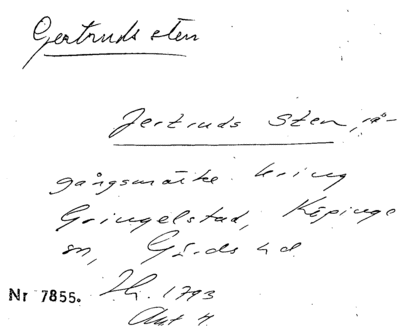 Gertruds sten
Jertruds Sten, rå-
gångsmärke kring
Gringelstad, Köpinge
sn, Gärds hd.
Nr 7855. Lh. 1793
Akt 4.